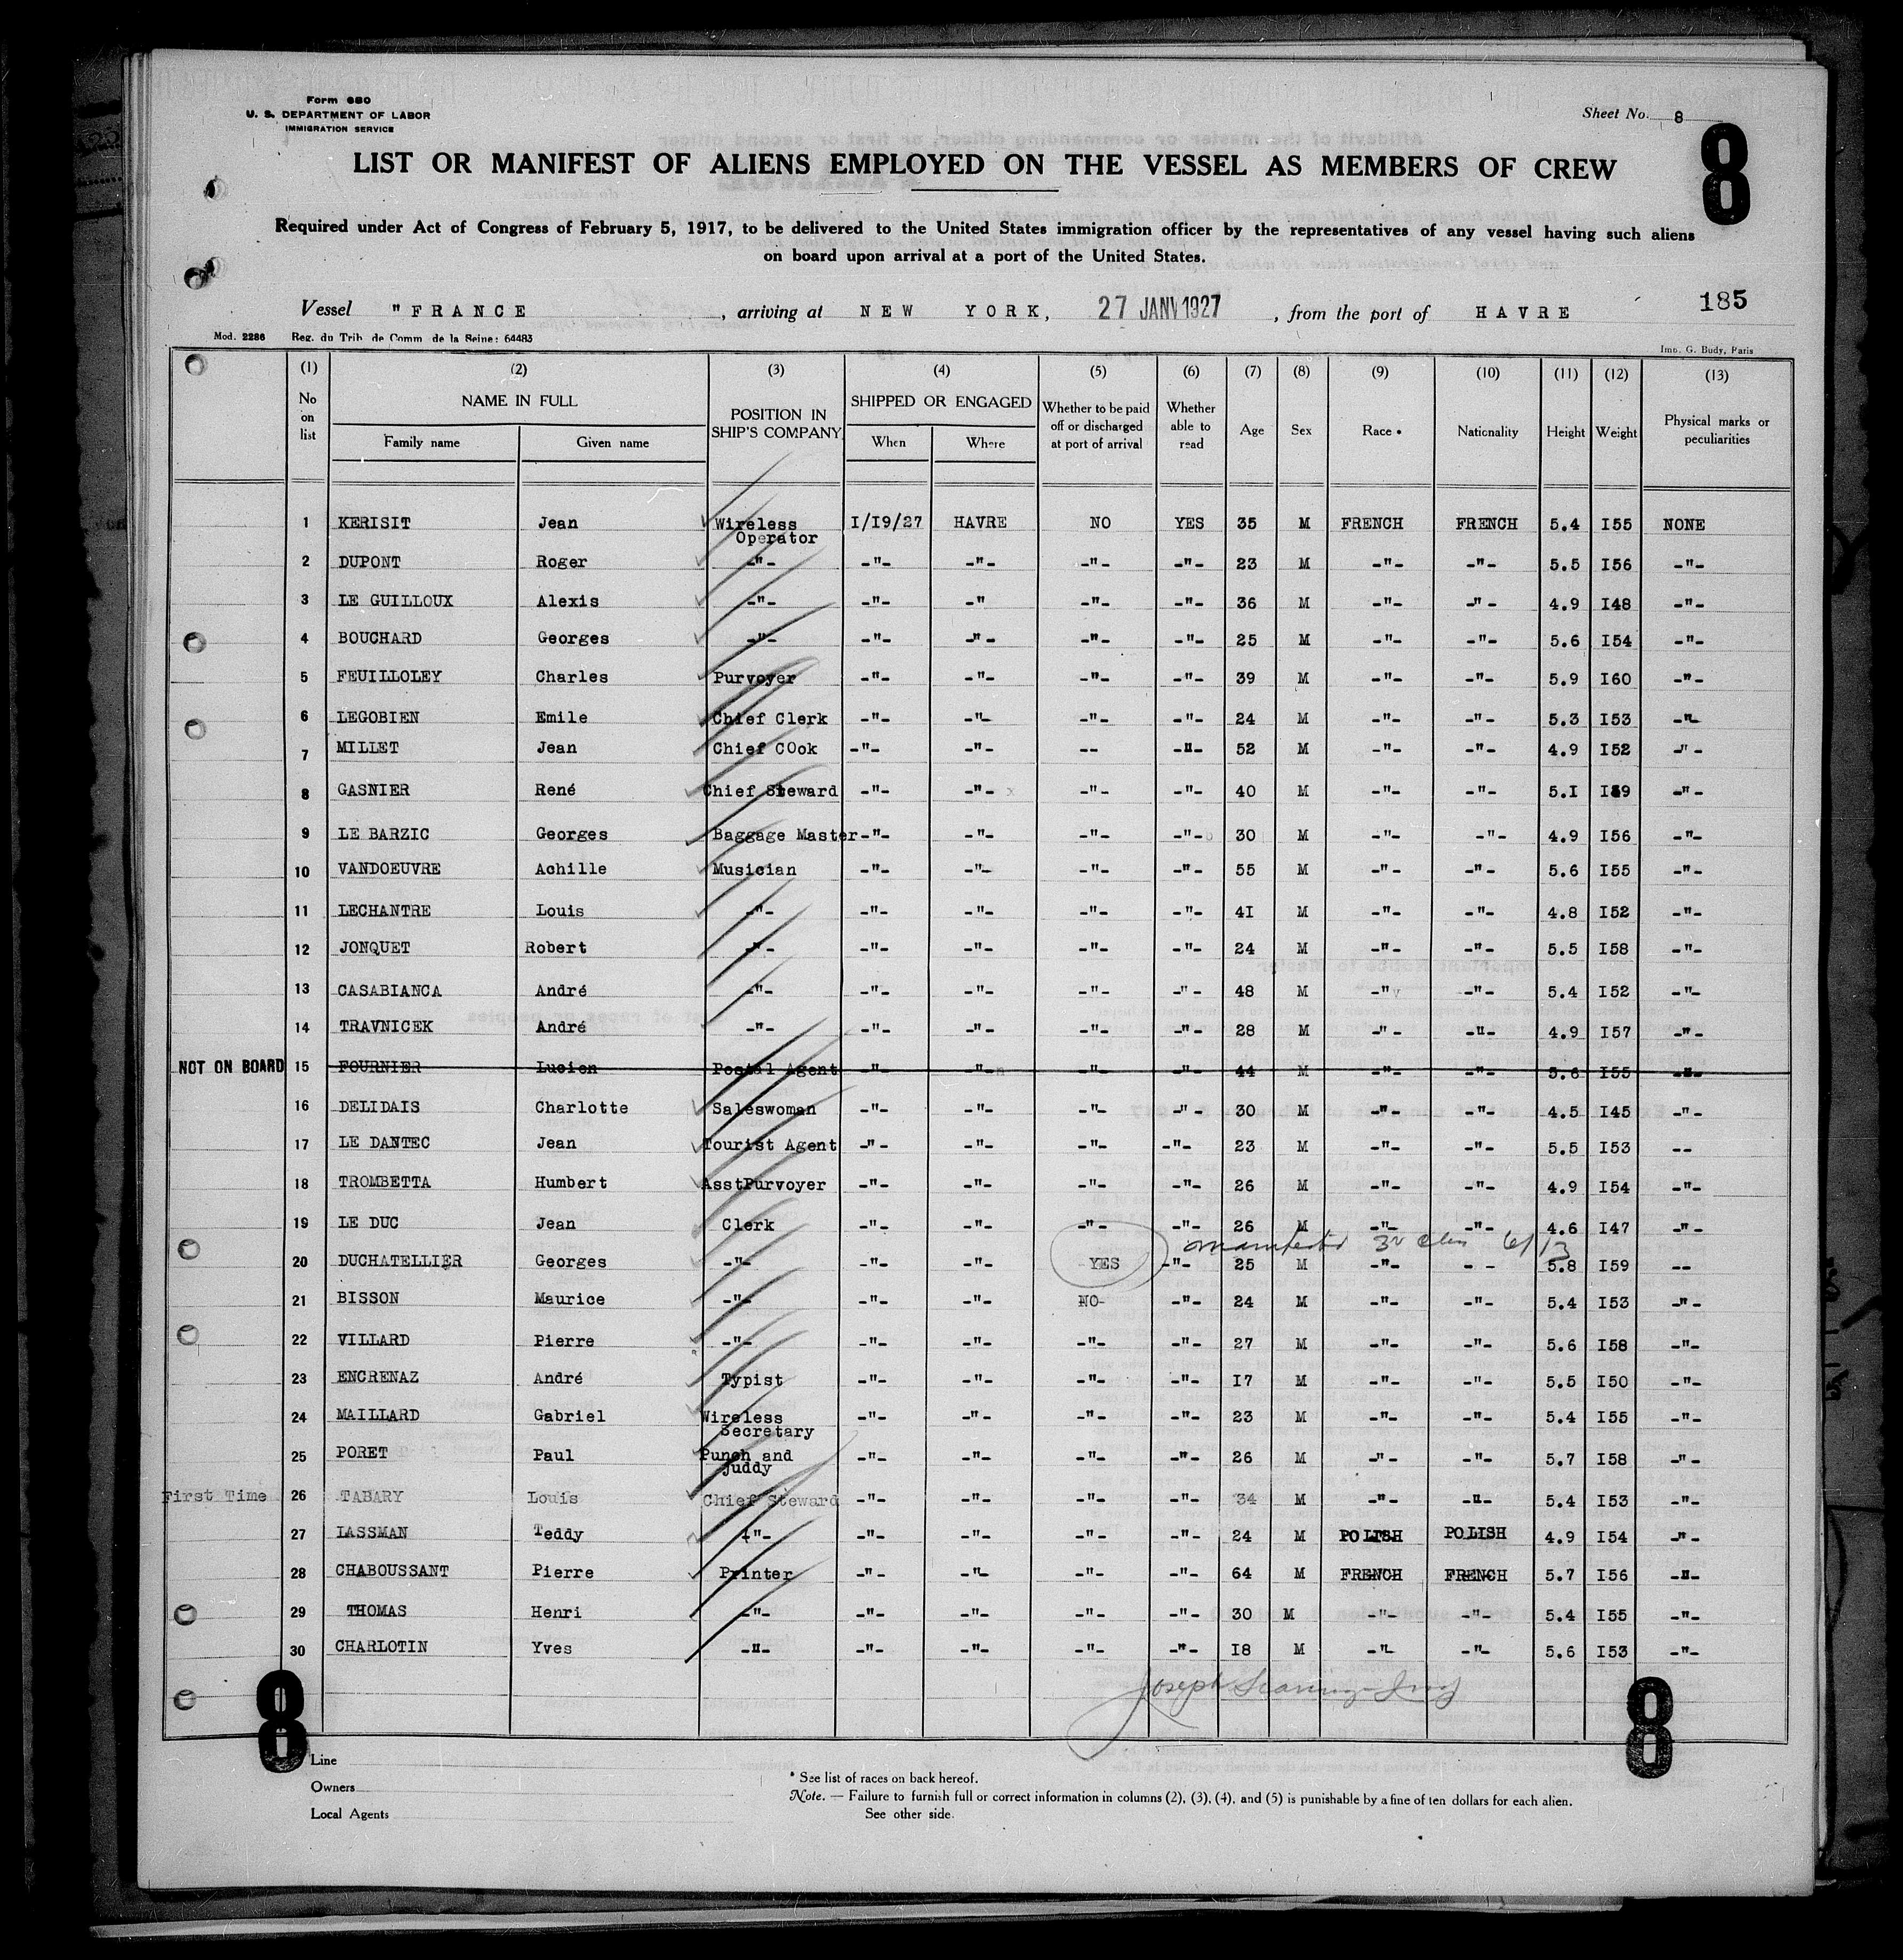 Form 680
U. S. DEPARTMENT OF LABOR
IMMIGRATION SERVICE
Sheet No. 8
8
LIST OR MANIFEST OF ALIENS EMPLOYED ON THE VESSEL AS MEMBERS OF CREW
Required under Act of Congress of February 5, 1917, to be delivered to the United States immigration officer by the representatives of any vessel having such aliens
on board upon arrival at a port of the United States.
185
Vessel "FRANCE , arriving at NEW YORK, 27 JANV 1927 , from the port of HAVRE
Mod. 2286 Reg. du Trib. de Comm. de la Seine: 64483 Imp. G. Budy, Paris
(1) (2) (3) (4) (5) (6) (7) (8) (9) (10) (11) (12) (13)
No on list NAME IN FULL Family name Given name POSITION IN SHIP'S COMPANY SHIPPED OR ENGAGED When Where Whether to be paid off or discharged at port of arrival Whether able to read Age Sex Race * Nationality Height Weight Physical marks or peculiarities
1 KERISIT Jean Wireless Operator I/I9/27 HAVRE NO YES 35 M FRENCH FRENCH 5.4 I55 NONE
2 DUPONT Roger -"- -"- -"- -"- -"- 23 M -"- -"- 5.5 I56 -"-
3 LE GUILLOUX Alexis -"- -"- -" -"- -"- 36 M -"- -"- 4.9 I48 -"-
4 BOUCHARD Georges -"- -"- -"- -"- -"- 25 M -"- -"- 5.6 I54 -"-
5 FEUILLOLEY Charles Purvoyer -"- -"- -"- -"- 39 M -"- -"- 5.9 I60 -"-
6 LEGOBIEN Emile Chief Clerk -"- -"- -"- -"- 24 M -"- -"- 5.3 I53 -"-
7 MILLET Jean Chief COok -"- -"- -- -"- 52 M -"- -"- 4.9 I52 -"-
8 GASNIER René Chief Steward -"- -"- -"- -"- 40 M -"- -"- 5.I I59 -"-
9 LE BARZIC Georges Baggage Master -"- -"- -"- -"- 30 M -"- -"- 4.9 I56 -"-
10 VANDOEUVRE Achille Musician -"- -"- -"- -"- 55 M -"- -"- 5.6 I55 -"-
11 LECHANTRE Louis -"- -"- -"- -"- -"- 4I M -"- -"- 4.8 I52 -"-
12 JONQUET Robert -"- -"- -"- -"- -"- 24 M -"- -"- 5.5 I58 -"-
13 CASABIANCA André -"- -"- -"- -"- -"- 48 M -"- -"- 5.4 I52 -"-
14 TRAVNICEK André -"- -"- -"- -"- -"- 28 M -"- -"- 4.9 I57 -"-
NOT ON BOARD 15 FOURNIER Lucien Postal Agent -"- -"- -"- -"- 44 M -"- -"- 5.6 I55 -"-
16 DELIDAIS Charlotte Saleswoman -"- -"- -"- -"- 30 M -"- -"- 4.5 I45 -"-
17 LE DANTEC Jean Tourist Agent -"- -"- -"- -"- 23 M -"- -"- 5.5 I53 --
18 TROMBETTA Humbert AsstPurvoyer -"- -"- -"- -"- 26 M -"- -"- 4.9 I54 -"-
19 LE DUC Jean Clerk -"- -"- -"- -"- 26 M -"- -"- 4.6 I47 -"-
6/13
20 DUCHATELLIER Georges -"- -"- -"- YES -"- 25 M -"- - - 5.8 I59 --
21 BISSON Maurice -"- -"- -"- NO- -"- 24 M -"- -"- 5.4 I53 -"-
22 VILLARD Pierre -"- -"- -"- -"- -"- 27 M -"- -"- 5.6 I58 -"-
23 ENCRENAZ André Typist -"- -"- -"- -"- I7 M -"- -"- 5.5 I50 -"-
24 MAILLARD Gabriel Wireless Secretary -"- -"- -"- -"- 23 M -"- -"- 5.4 I55 -"-
25 PORET Paul Punch and Juddy -"- -"- -"- -"- 26 M -"- -"- 5.7 I58 -"-
First Time 26 TABARY Louis Chief Steward -"- -"- -"- -"- 34 M -"- -"- 5.4 I53 -"-
27 LASSMAN Teddy -"- -"- -"- -"- -"- 24 M POLISH POLISH 4.9 I54 -"-
28 CHABOUSSANT Pierre Printer -"- -"- -"- -"- 64 M FRENCH FRENCH 5.7 I56 -"-
29 THOMAS Henri -"- -"- -"- -"- -"- 30 M -"- -"- 5.4 I55 -"-
30 CHARLOTIN Yves -"- -"- -"- -"- -"- I8 M -"- -"- 5.6 I53 -"-
Joseph
8 8
Line
Owners
Local Agents
* See list of races on back hereof.
Note. — Failure to furnish full or correct information in columns (2), (3), (4), and (5) is punishable by a fine of ten dollars for each alien.
See other side.